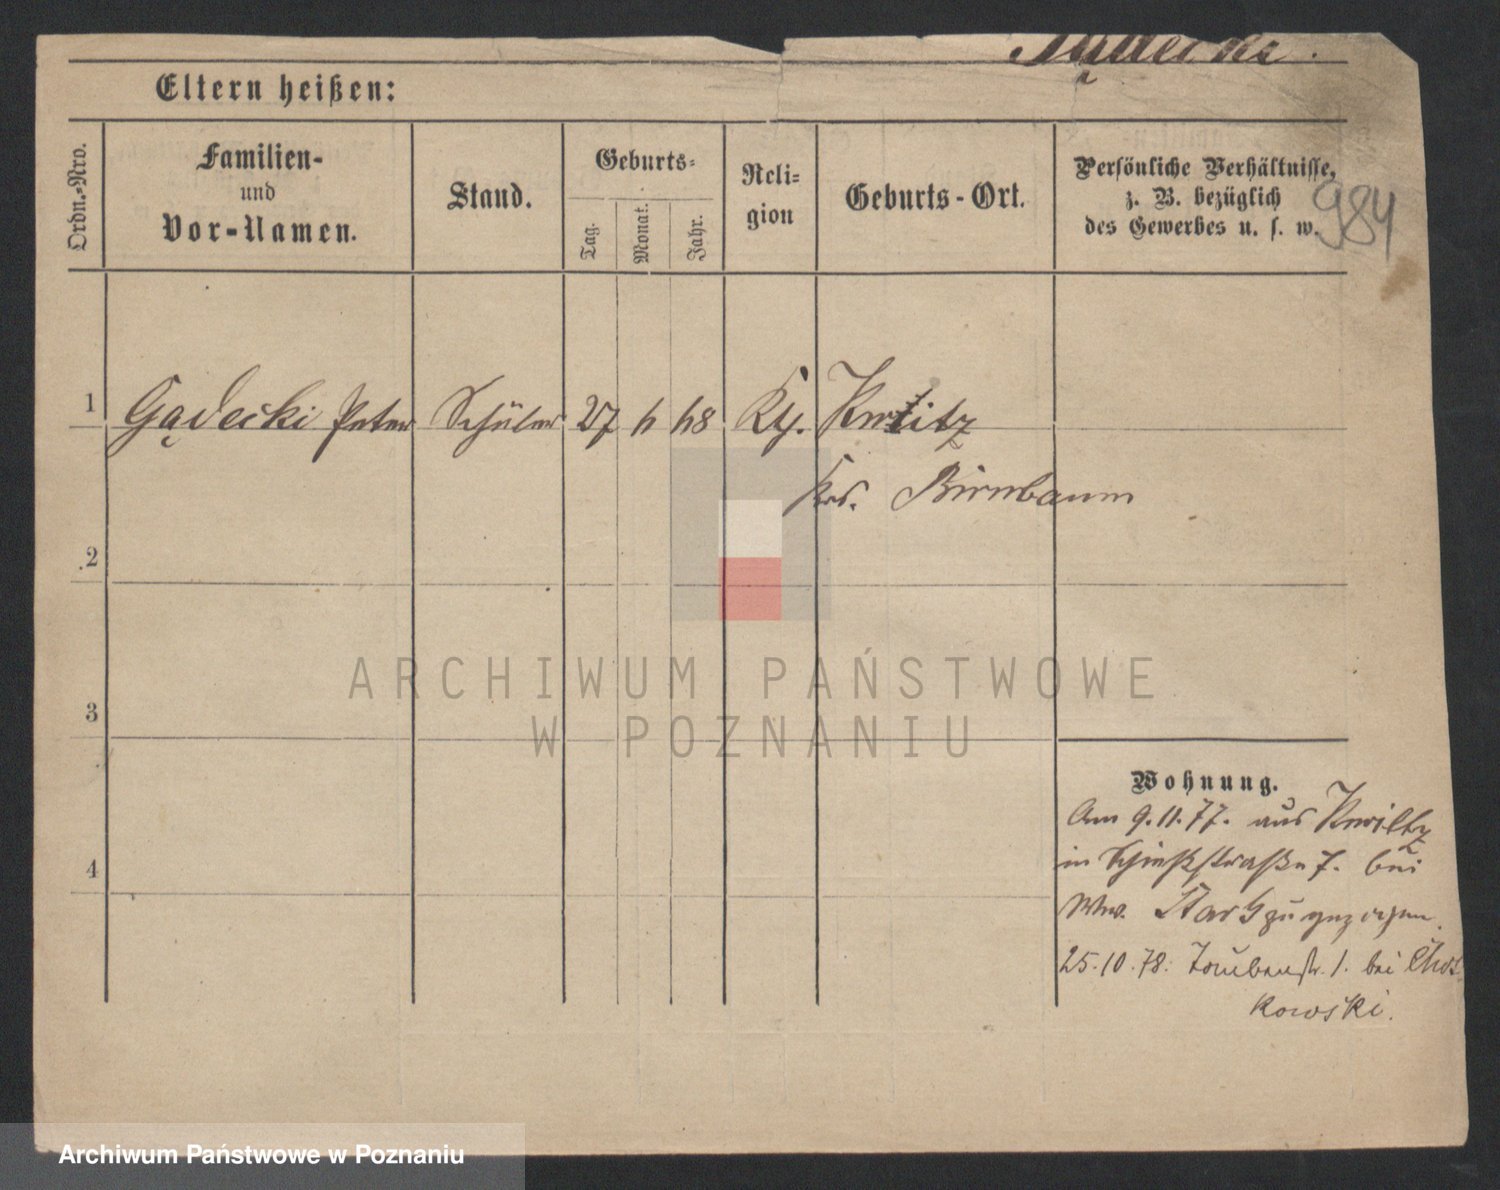 Gądecki.
Eltern heißen:
Ordn.-Nro.
Familien-
und
Vor-Namen.
Stand.
Geburts-
Tag.
Monat.
Jahr.
Reli-
gion
Geburts-Ort.
Persönliche Verhältnisse,
z. B. bezüglich
des Gewerbes u. s. w.
984
1 Gądecki Peter Schüler 27 6 68 Kth. Kwiltz
Krs. Birnbaum
2
3
4
Wohnung.
Am 9.11.77. aus Kwiltz
in Schießstraße 7. bei
Wwe. Stark zugezogen.
25.10.78. Taubenstr. 1. bei Chos-
kowski.
ARCHIWUM PAŃSTWOWE
W POZNANIU
Archiwum Państwowe w Poznaniu